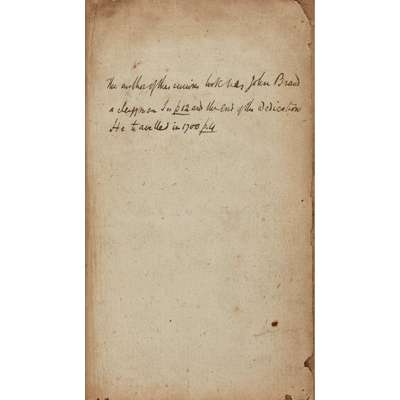 The author of this curious book was John Brand
a clergyman See p 12 and the End of the Dedication
He travelled in 1700 p 4